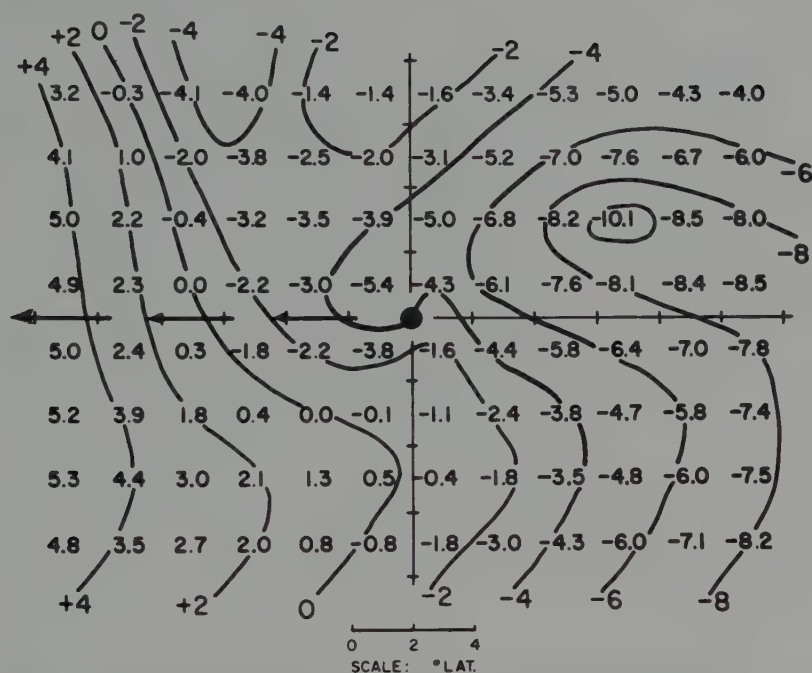 -2 -4 -4 -2
+2 0 -2 -4
+4
3.2 -0.3 -4.1 -4.0 -1.4 -1.4 -1.6 -3.4 -5.3 -5.0 -4.3 -4.0
4.1 1.0 -2.0 -3.8 -2.5 -2.0 -3.1 -5.2 -7.0 -7.6 -6.7 -6.0
-6
5.0 2.2 -0.4 -3.2 -3.5 -3.9 -5.0 -6.8 -8.2 -10.1 -8.5 -8.0
-8
4.9 2.3 0.0 -2.2 -3.0 -5.4 -4.3 -6.1 -7.6 -8.1 -8.4 -8.5
5.0 2.4 0.3 -1.8 -2.2 -3.8 -1.6 -4.4 -5.8 -6.4 -7.0 -7.8
5.2 3.9 1.8 0.4 0.0 -0.1 -1.1 -2.4 -3.8 -4.7 -5.8 -7.4
5.3 4.4 3.0 2.1 1.3 0.5 -0.4 -1.8 -3.5 -4.8 -6.0 -7.5
4.8 3.5 2.7 2.0 0.8 -0.8 -1.8 -3.0 -4.3 -6.0 -7.1 -8.2
+4 +2 0 -2 -4 -6 -8
0 2 4
SCALE: °LAT.